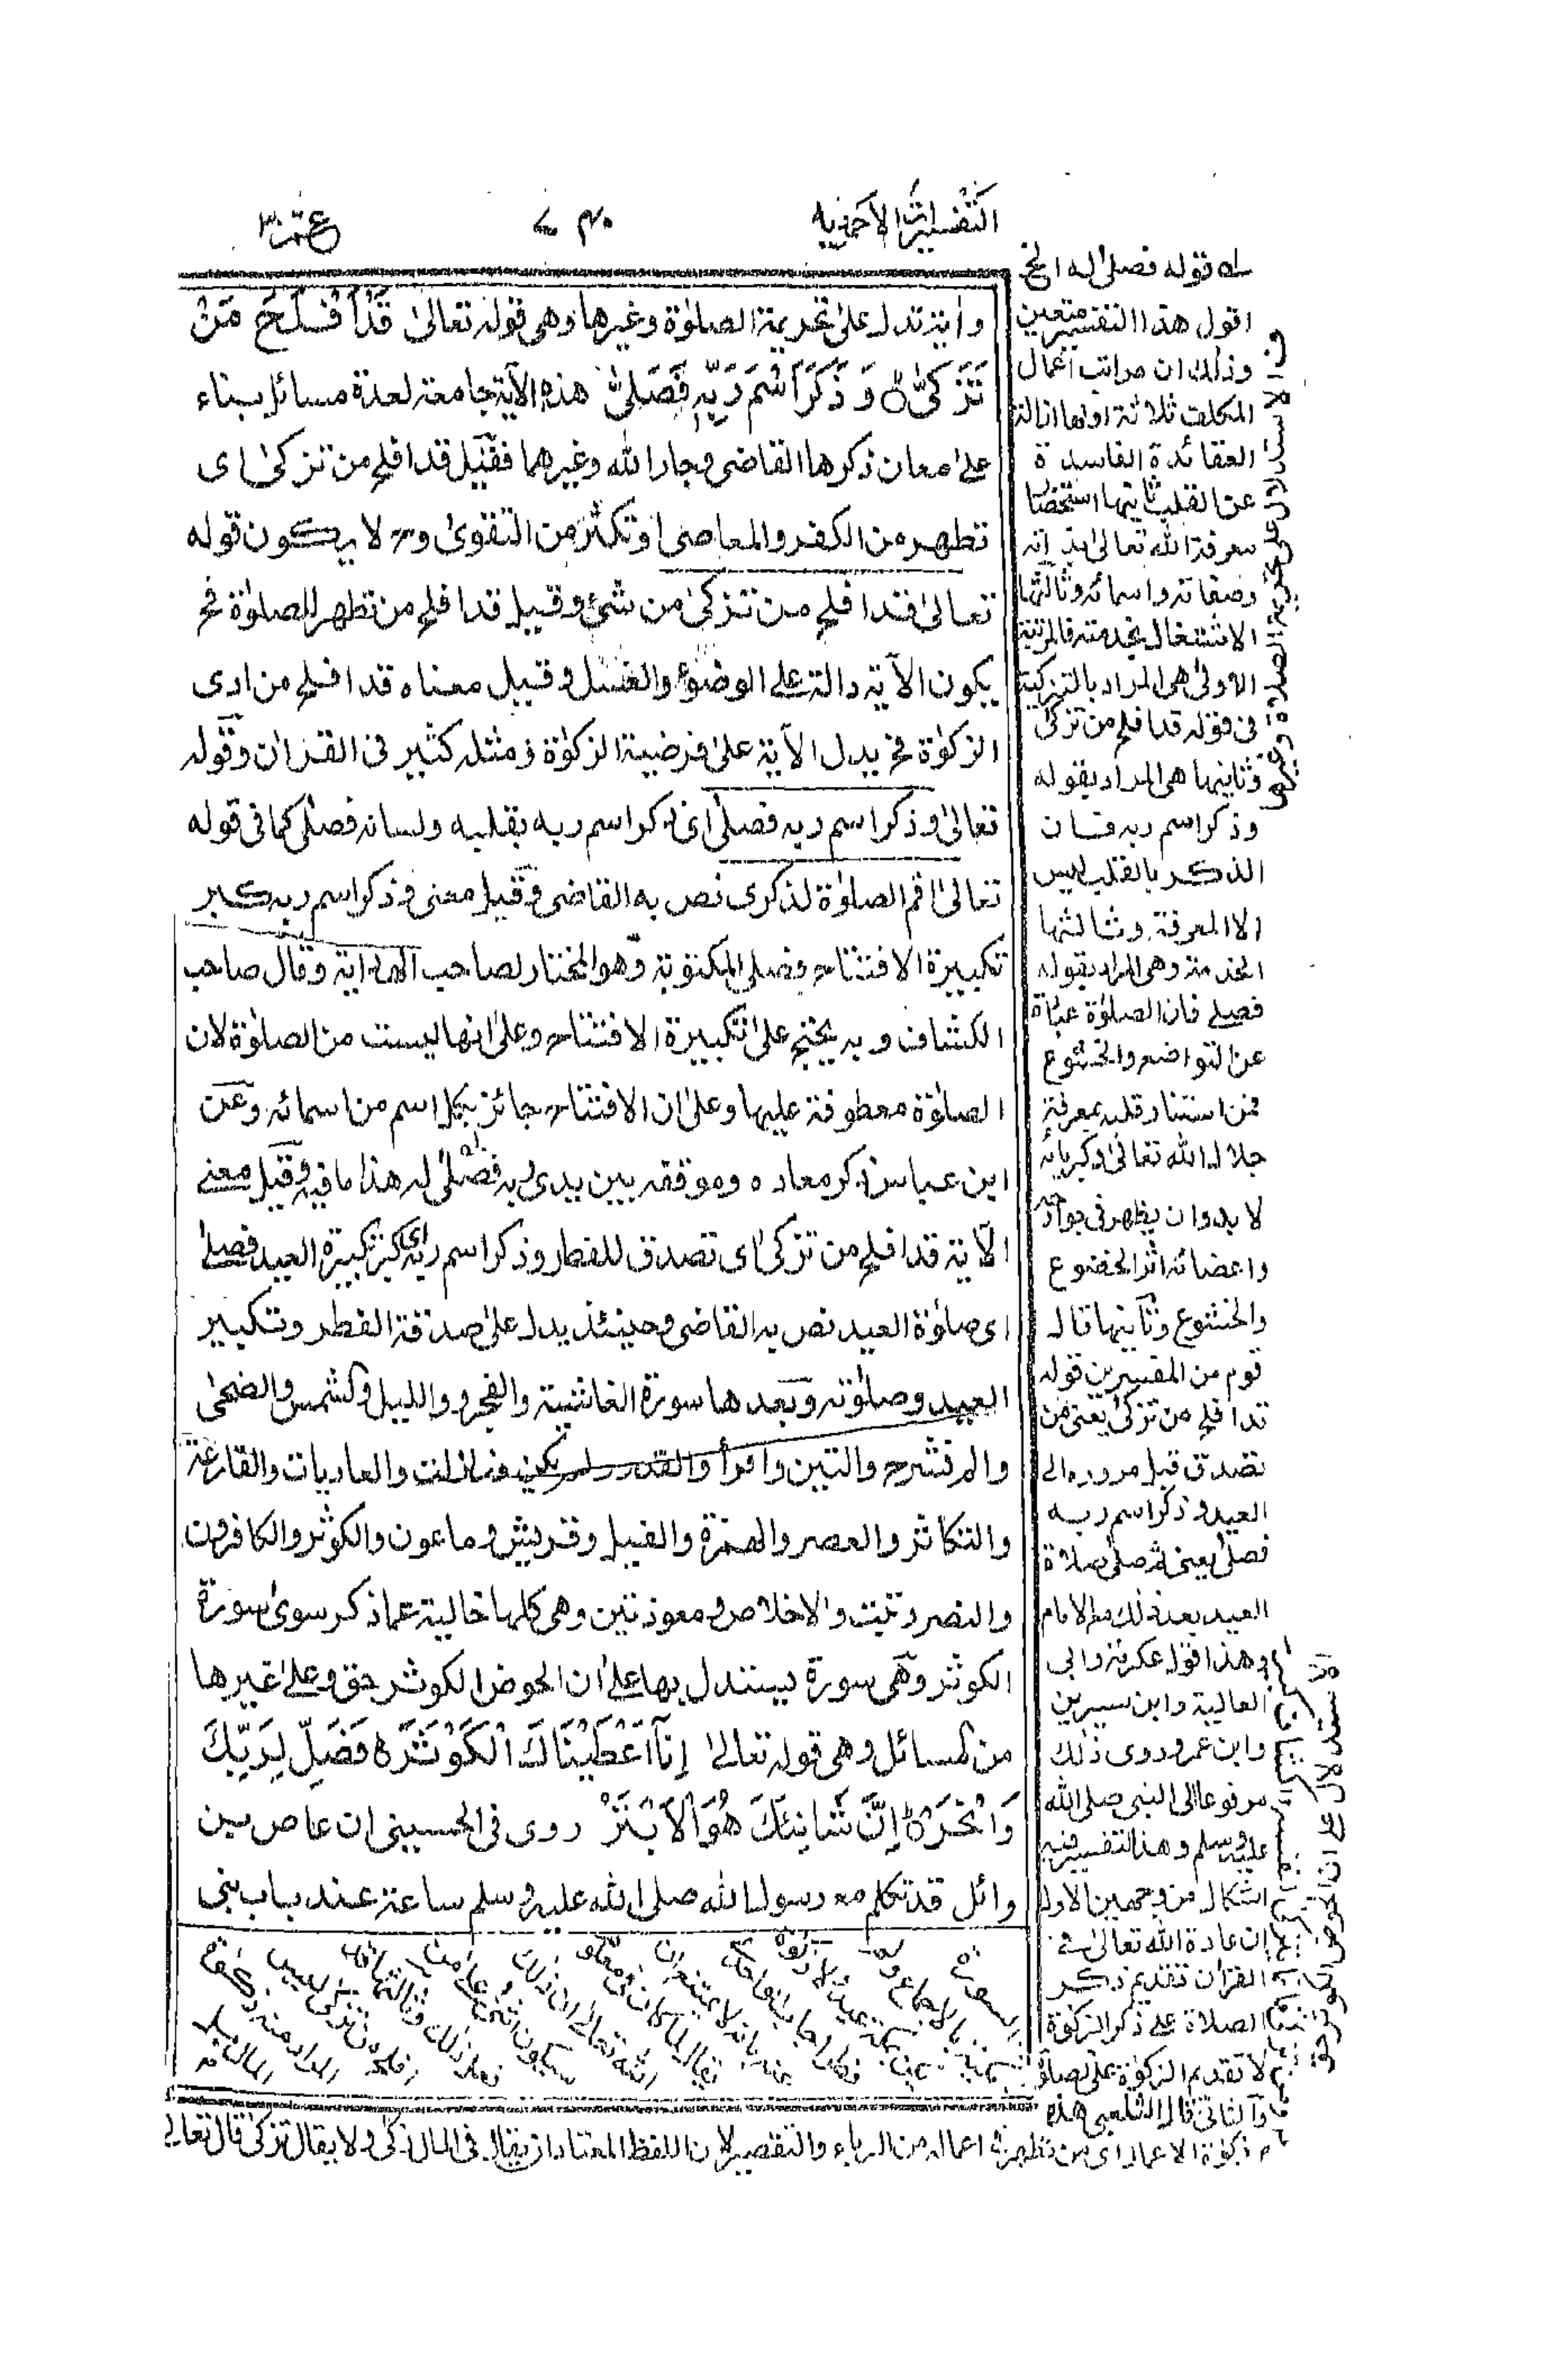 التفسيرات الاحمديه
عم ٣٠
واية تدل على تحريمة الصلوة وغيرها وهى قوله تعالى قَدْ اَفْلَحَ مَنْ
تَزَكّٰى وَذَكَرَ اسْمَ رَبِّهٖ فَصَلّٰى هذه الآية جامعة لعدة مسائل بناء
على معان ذكرها القاضى وجار الله وغيرهما فقيل قد افلح من تزكى اى
تطهر من الكفر والمعاصى او تكثر من التقوى وح لا يكون قوله
تعالى قد افلح من تزكى من شئ وقيل قد افلح من تطهر للصلوة فح
يكون الآية دالة على الوضوء والغسل وقيل معناه قد افلح من ادى
الزكوة فح يدل الآية على فرضية الزكوة ومثله كثير فى القران وقوله
تعالى وذكر اسم ربه فصلى اى ذكر اسم ربه بقلبه ولسانه فصلى كما فى قوله
تعالى اقم الصلوة لذكرى نص به القاضى وقيل معنى وذكر اسم ربه كبر
تكبيرة الافتتاح وفصلى المكتوبة وهو المختار لصاحب الهداية وقال صاحب
الكشاف وبه يحتج على تكبيرة الافتتاح وعلى انها ليست من الصلوة لان
الصلوة معطوفة عليها وعلى ان الافتتاح جائز بكل اسم من اسمائه وعن
ابن عباس ذكر معاده وموقفه بين يدى ربه فصلى له هذا ما فيه وقيل معنى
الآية قد افلح من تزكى اى تصدق للفطر وذكر اسم ربه اى كبر تكبيرة العيد فصلى
اى صلوة العيد نص به القاضى وحينئذ يدل على صدقة الفطر وتكبير
العيد وصلوته وبعدها سورة الغاشية والفجر والليل والشمس والضحى
والم نشرح والتين واقرأ والقدر ولم يكن وزلزلت والعاديات والقارعة
والتكاثر والعصر والهمزة والفيل وقريش وماعون والكوثر والكافرون
والنصر وتبت والاخلاص ومعوذتين وهى كلها خالية عما ذكر سوى سورة
الكوثر وهى سورة يستدل بها على ان الحوض الكوثر حق وعلى غيرها
من المسائل وهى قوله تعالى اِنَّآ اَعْطَيْنَاكَ الْكَوْثَرَ فَصَلِّ لِرَبِّكَ
وَانْحَرْ اِنَّ شَانِئَكَ هُوَ الْاَبْتَرُ روى فى الحسينى ان عاص بن
وائل قد تكلم مع رسول الله صلى الله عليه وسلم ساعة عند باب بنى
له قوله فصلى له الخ
اقول هذا التفسير متعين
وذلك ان مراتب اعمال
المكلف ثلاثة اولها ازالة
العقائدة الفاسدة
عن القلب ثانيها استحضار
معرفة الله تعالى بذاته
وصفاته واسمائه وثالثها
الاشتغال بخدمته فالمرتبة
الاولى هى المراد بالتزكية
فى قوله قد افلح من تزكى
وثانيها هى المراد بقوله
وذكر اسم ربه فان
الذكر بالقلب ليس
الا المعرفة وثالثها
الخدمة وهى المراد بقوله
فصلى فان الصلوة عبارة
عن التواضع والخشوع
فمن استنار قلبه بمعرفة
جلال الله تعالى وكبريائه
لا بد وان يظهر فى جوارحه
واعضائه اثر الخضوع
والخشوع وثانيها قال
قوم من المفسرين قوله
قد افلح من تزكى يعنى من
تصدق قبل مروره الى
العيد وذكر اسم ربه
فصلى يعنى ثم صلى صلاة
العيد بعد ذلك مع الامام
وهذا قول عكرمة وابى
العالية وابن سيرين
وابن عمر وروى ذلك
مرفوعا الى النبى صلى الله
عليه وسلم وهذا التفسير فيه
اشكال من وجهين الاول
ان عادة الله تعالى فى
القران تقديم ذكر
الصلاة على ذكر الزكوة
لا تقديم الزكوة على الصلوة
والثانى قال الثعلبى هذه
زكوة الاعمال اى من تطهر فى اعماله من الرياء والتقصير لان اللفظ المعتاد ان يقال فى المال زكى ولا يقال تزكى قال تعالى